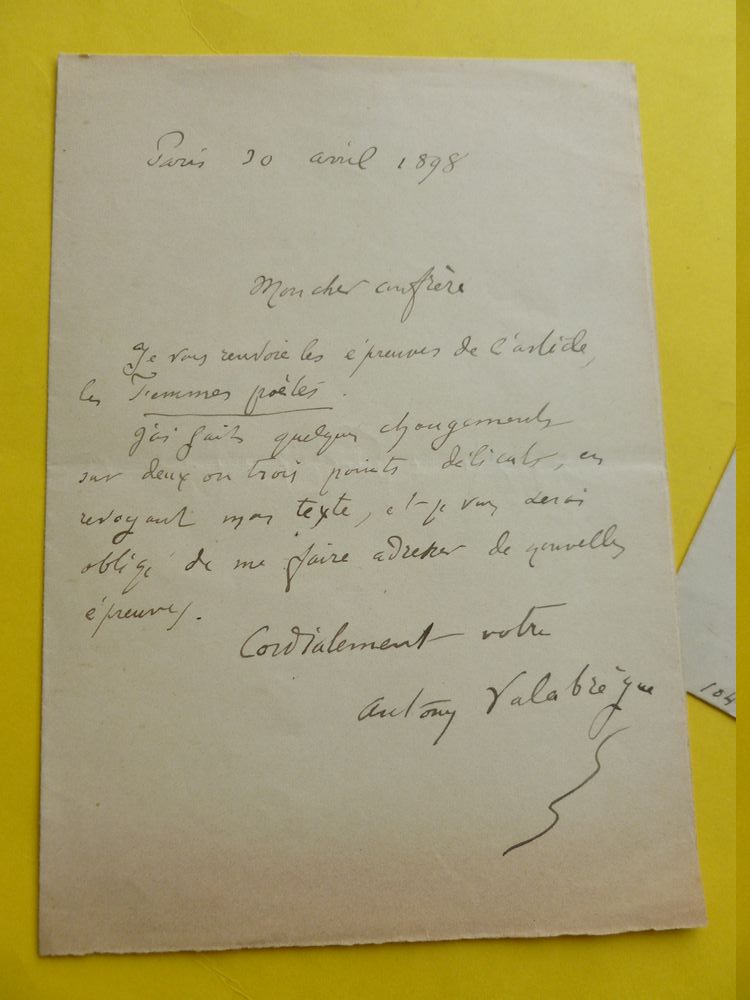 Paris 30 avril 1898
Mon cher confrère
Je vous renvoie les épreuves de l'article,
les Femmes poètes.
J'ai fait quelques changements
sur deux ou trois points délicats, en
revoyant mon texte, et je vous serai
obligé de me faire adresser de nouvelles
épreuves.
Cordialement votre
Antony Valabrègue
104